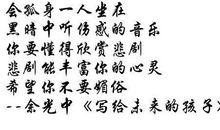 会孤身一人坐在
黑暗中听伤感的音乐
你要懂得欣赏悲剧
悲剧能丰富你的心灵
希望你不要媚俗
--余光中《写给未来的孩子》